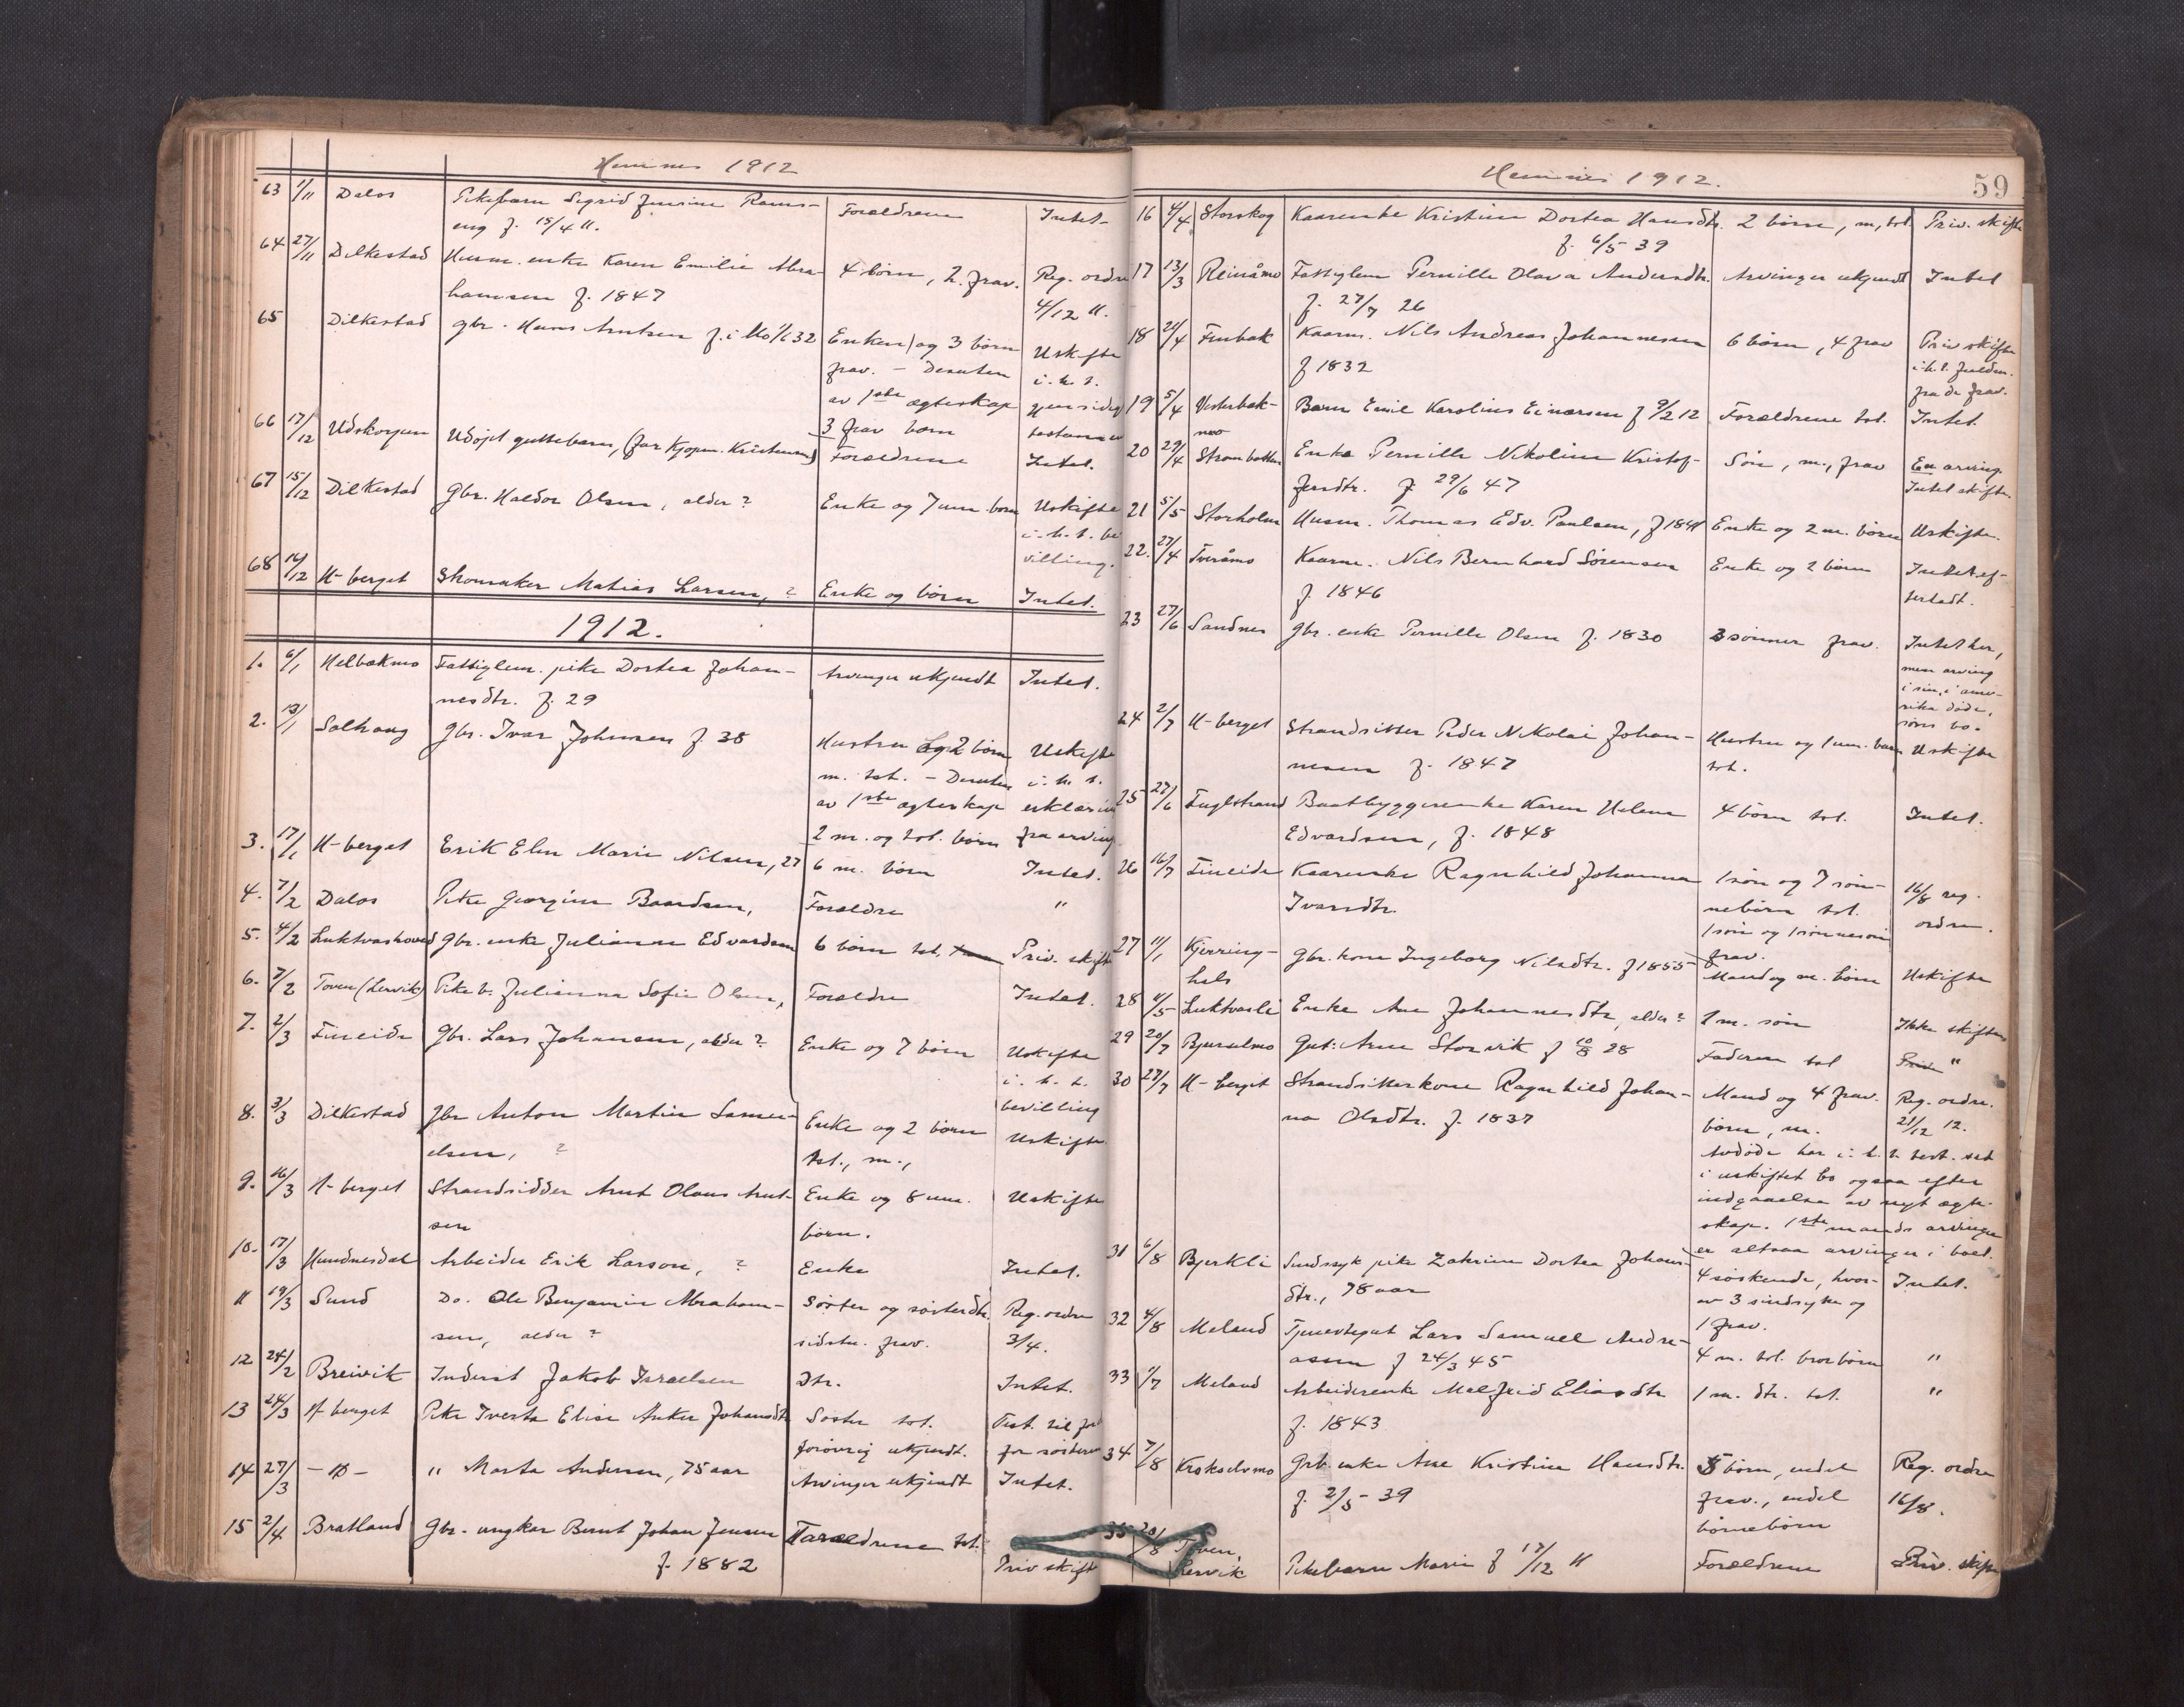 Hemnes 1912
63 1/11 Dalos Pikebarn Sigrid Jensine Rams- Forældrene Intet.
eng f. 15/4 11.
64 27/11 Dilkestad Husm. enke Karen Emilie Abra- 4 børn, 2 frav. Reg. ordre
hamsen f. 1847 4/12 11.
65 Dilkestad Gbr. Hans Arntsen f. i Mo 1/6 32 Enken og 3 børn Uskifte
frav. - Desuten i. h. t.
av 1ste ægteskap gjensidig
3 frav børn
66 17/12 Udskarpen Udøpt guttebarn, (far Kjøpm. Kristensen) Forældrene Intet.
67 15/12 Dilkestad Gbr. Haldor Olsen, alder? Enke og 7 um. børn Uskifte
i. h. t. be
villing.
68 14/12 H-berget Skomaker Matias Larsen, ? Enke og børn Intet.
1912.
1. 6/1 Helbækmo Fattiglem. pike Dortea Johan- Arvinger ukjendt Intet.
nesdtr. f. 29
2. 13/1 Solhaug Gbr. Ivar Johnsen f. 38 Hustru og 2 børn Uskifte
m. tst. - Desuten i. h. t.
av 1ste ægteskap erklæring
2 m. og tst. børn fra arving
3. 17/1 H-berget Erik Elen Marie Nilsen, 27 6 m. børn Intet.
4. 7/2 Dalos Pike Georgine Baardsen, Forældre "
5. 4/2 Luktvashoved Gbr. enke Julianna Edvardsen 6 børn tst. Priv. skifte
6. 7/2 Toven (Lervik) Pike b. Julianna Sofie Olsen, Forældre Intet.
7. 2/3 Fineide Gbr. Lars Johansen, alder? Enke og 7 børn Uskifte
i. h. t.
bevilling
8. 3/3 Dilkestad Gbr Anton Martin Samu- Enke og 2 børn Uskifte
elsen, ? tst., m.,
9. 16/3 H-berget Strandsidder Arnt Olaus Arnt- Enke og 8 um. Uskifte
sen børn.
10. 17/3 Hundnesdal Arbeider Erik Larson, ? Enke Intet.
11 19/3 Sund Do. Ole Benjamin Abraham- Søster og søsterdtr. Reg. ordre
sen, alder? sidstn. frav. 3/4.
12 24/2 Breivik Inderst Jakob Israelsen Dtr. Intet.
13 24/3 H-berget Pike Iverta Elise Anker Johansdtr Søster tst. Test. til for
forøvrig ukjendt. for søsteren
14 27/3 -"- " Marta Andersen, 75 aar Arvinger ukjendt Intet.
15 2/4 Bratland Gbr. ungkar Bernt Johan Jensen Forældrene tst.
f. 1882 Priv skift
Hemnes 1912. 59
16 4/4 Storskog Kaarenke Kristine Dortea Hansdtr. 2 børn, m, tst. Priv. skifte
f. 6/5 39
17 13/3 Reinåmo Fattiglem Pernille Olava Andersdtr. Arvinger ukjendt Intet
f. 27/7 26
18 21/4 Finbak Kaarm. Nils Andreas Johannesen 6 børn, 4 frav Priv skifte
f 1832 i. h. t. fuldm.
fra de frav.
19 5/4 Vesterbak- Barn Emil Karolius Einarsen f 9/2 12 Forældrene tst. Intet.
mo
20 29/4 Strømbotten Enke Pernille Nikoline Kristof- Søn, m., frav En arving.
fersdtr. f. 29/6 47 Intet skifte.
21 5/5 Storholm Husm. Thomas Edv. Paulsen, f 1841 Enke og 2 m. børn Uskifte.
22. 27/4 Tveråmo Kaarm. Nils Bernhard Sørensen Enke og 2 børn Intet ef-
f 1846 terladt.
23 27/6 Sandnes Gbr. enke Pernille Olsen f. 1830 3 sønner frav. Intet her,
men arving
i sin, i ame-
rika døde,
søns bo.
24 2/7 H-berget Strandsitter Peder Nikolai Johan- Hustru og 1 um. barn Uskifte
nesen f. 1847 tst.
25 27/6 Fuglstrand Baatbyggerenke Karen Helene 4 børn tst. Intet.
Edvardsen, f. 1848
26 16/7 Fineide Kaarenke Ragnhild Johanna 1 søn og 7 søn- 16/8 reg.
Ivarsdtr. nebørn tst. ordre.
1 søn og 1 sønnesøn
frav.
27 11/1 Kjerring- Gbr. kone Ingeborg Nilsdtr. f 1855 Mand og m. børn Uskifte
hals
28 4/5 Luktvasli Enke Ane Johannesdtr, alder? 1 m. søn Ikke skifte
29 20/7 Bjurselmo Gut: Arne Storvik f 10/8 28 Faderen tst "
30 27/7 H-berget Strandsitterkone Ragnhild Johan- Mand og 4 frav. Reg. ordre.
na Olsdtr. f. 1837 børn, m. 21/12 12.
Avdøde har i. h. t. test. sit
i uskiftet bo ogsaa efter
indgaaelse av nyt ægte-
skap. 1ste mands arvinger
er altsaa arvinger i boet.
31 6/8 Bjerkli Sindssyk pike Zakrine Dortea Johans- 4 søskende, hvor- Intet.
dtr., 78 aar av 3 sindsyke og
1 frav.
32 4/8 Meland Tjenestegut Lars Samuel Andre- 4 m. tst. brorbørn "
asen f 24/3 45
33 1/7 Meland Arbeiderenke Malfrid Eliasdtr 1 m. dtr. tst. "
f. 1843
34 7/8 Kroksdvmo Grb enke Ane Kristine Hansdtr. 5 børn, endel Reg. ordre
f. 2/5 39 frav., endel 16/8.
børnebørn
35 20/8 Toven,
Lervik Pikebarn Marie f 17/12 11 Forældrene Priv. skifte